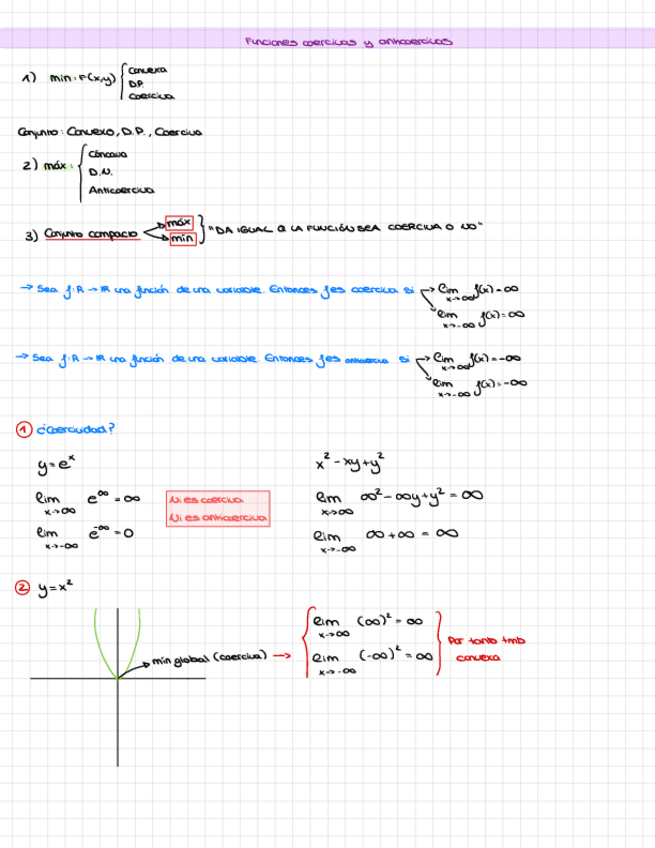 Funciones coercivas y anticoercivas
1) min: F(x,y) { Convexa
D.P.
Coerciva
Conjunto: Convexo, D.P., Coerciva
2) máx: { Cóncava
D.N.
Anticoerciva
3) Conjunto compacto → máx
→ mín } "DA IGUAL Q LA FUNCIÓN SEA COERCIVA O NO"
→ Sea f: R → R una función de una variable. Entonces f es coerciva si → lim x→∞ f(x)=∞
lim x→-∞ f(x)=∞
→ Sea f: R → R una función de una variable. Entonces f es anticoerciva si → lim x→∞ f(x)=-∞
lim x→-∞ f(x)=-∞
① ¿Coercividad?
y=e^x
lim x→∞ e^∞ = ∞
lim x→-∞ e^-∞ = 0
Ni es coerciva
Ni es anticoerciva
x² - xy + y²
lim x→∞ ∞² - ∞y + y² = ∞
lim x→-∞ ∞ + ∞ = ∞
② y=x²
min global (coerciva) →
lim x→∞ (∞)² = ∞
lim x→-∞ (-∞)² = ∞
Por tanto tmb
convexa